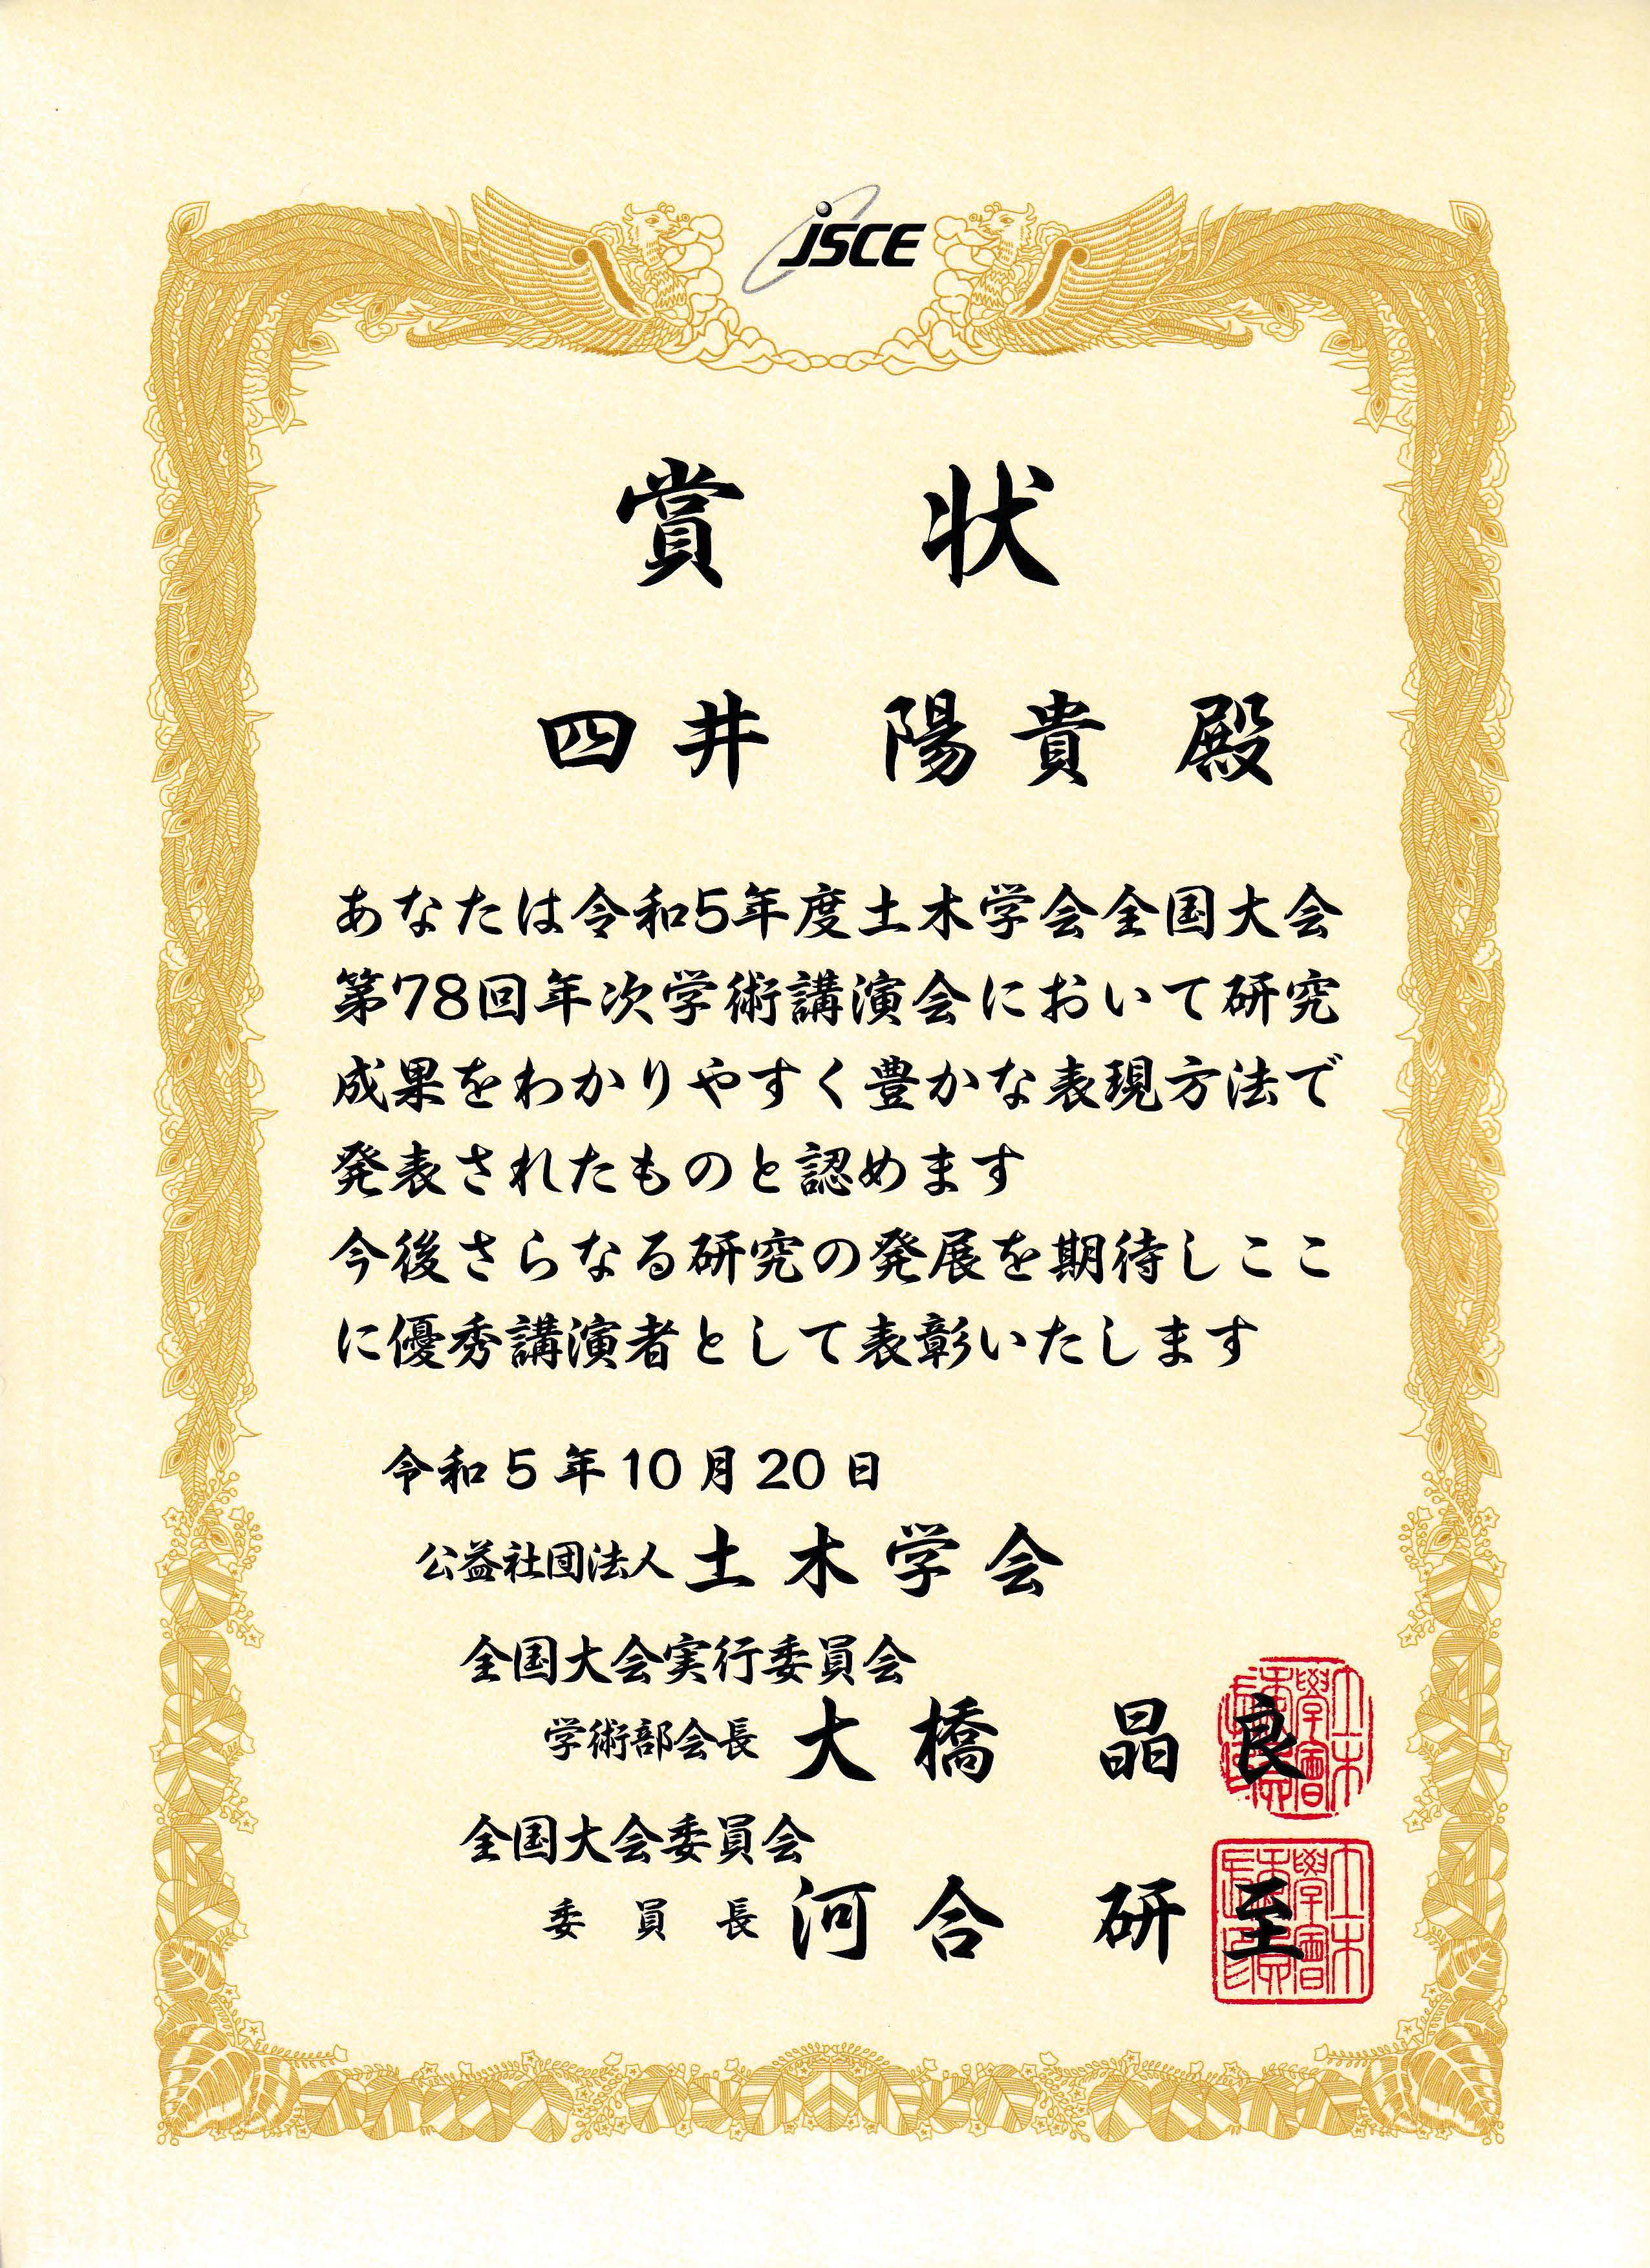 JSCE
賞 状
四井 陽貴 殿
あなたは令和5年度土木学会全国大会
第78回年次学術講演会において研究
成果をわかりやすく豊かな表現方法で
発表されたものと認めます
今後さらなる研究の発展を期待しここ
に優秀講演者として表彰いたします
令和5年10月20日
公益社団法人 土木学会
全国大会実行委員会
学術部会長 大橋 晶良
全国大会委員会
委員長 河合 研至